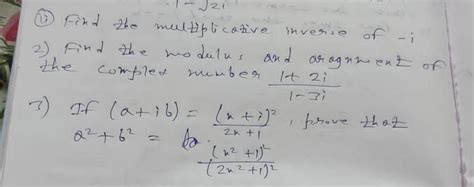 1-√2i
ii) Find the multiplicative inverse of -i
2) Find the modulus and aragnment of
the complex number (1+2i)/(1-3i)
3) If (a+ib) = (x+i)²/(2x+1), prove that
a²+b² = (x²+1)²/(2x²+1)²